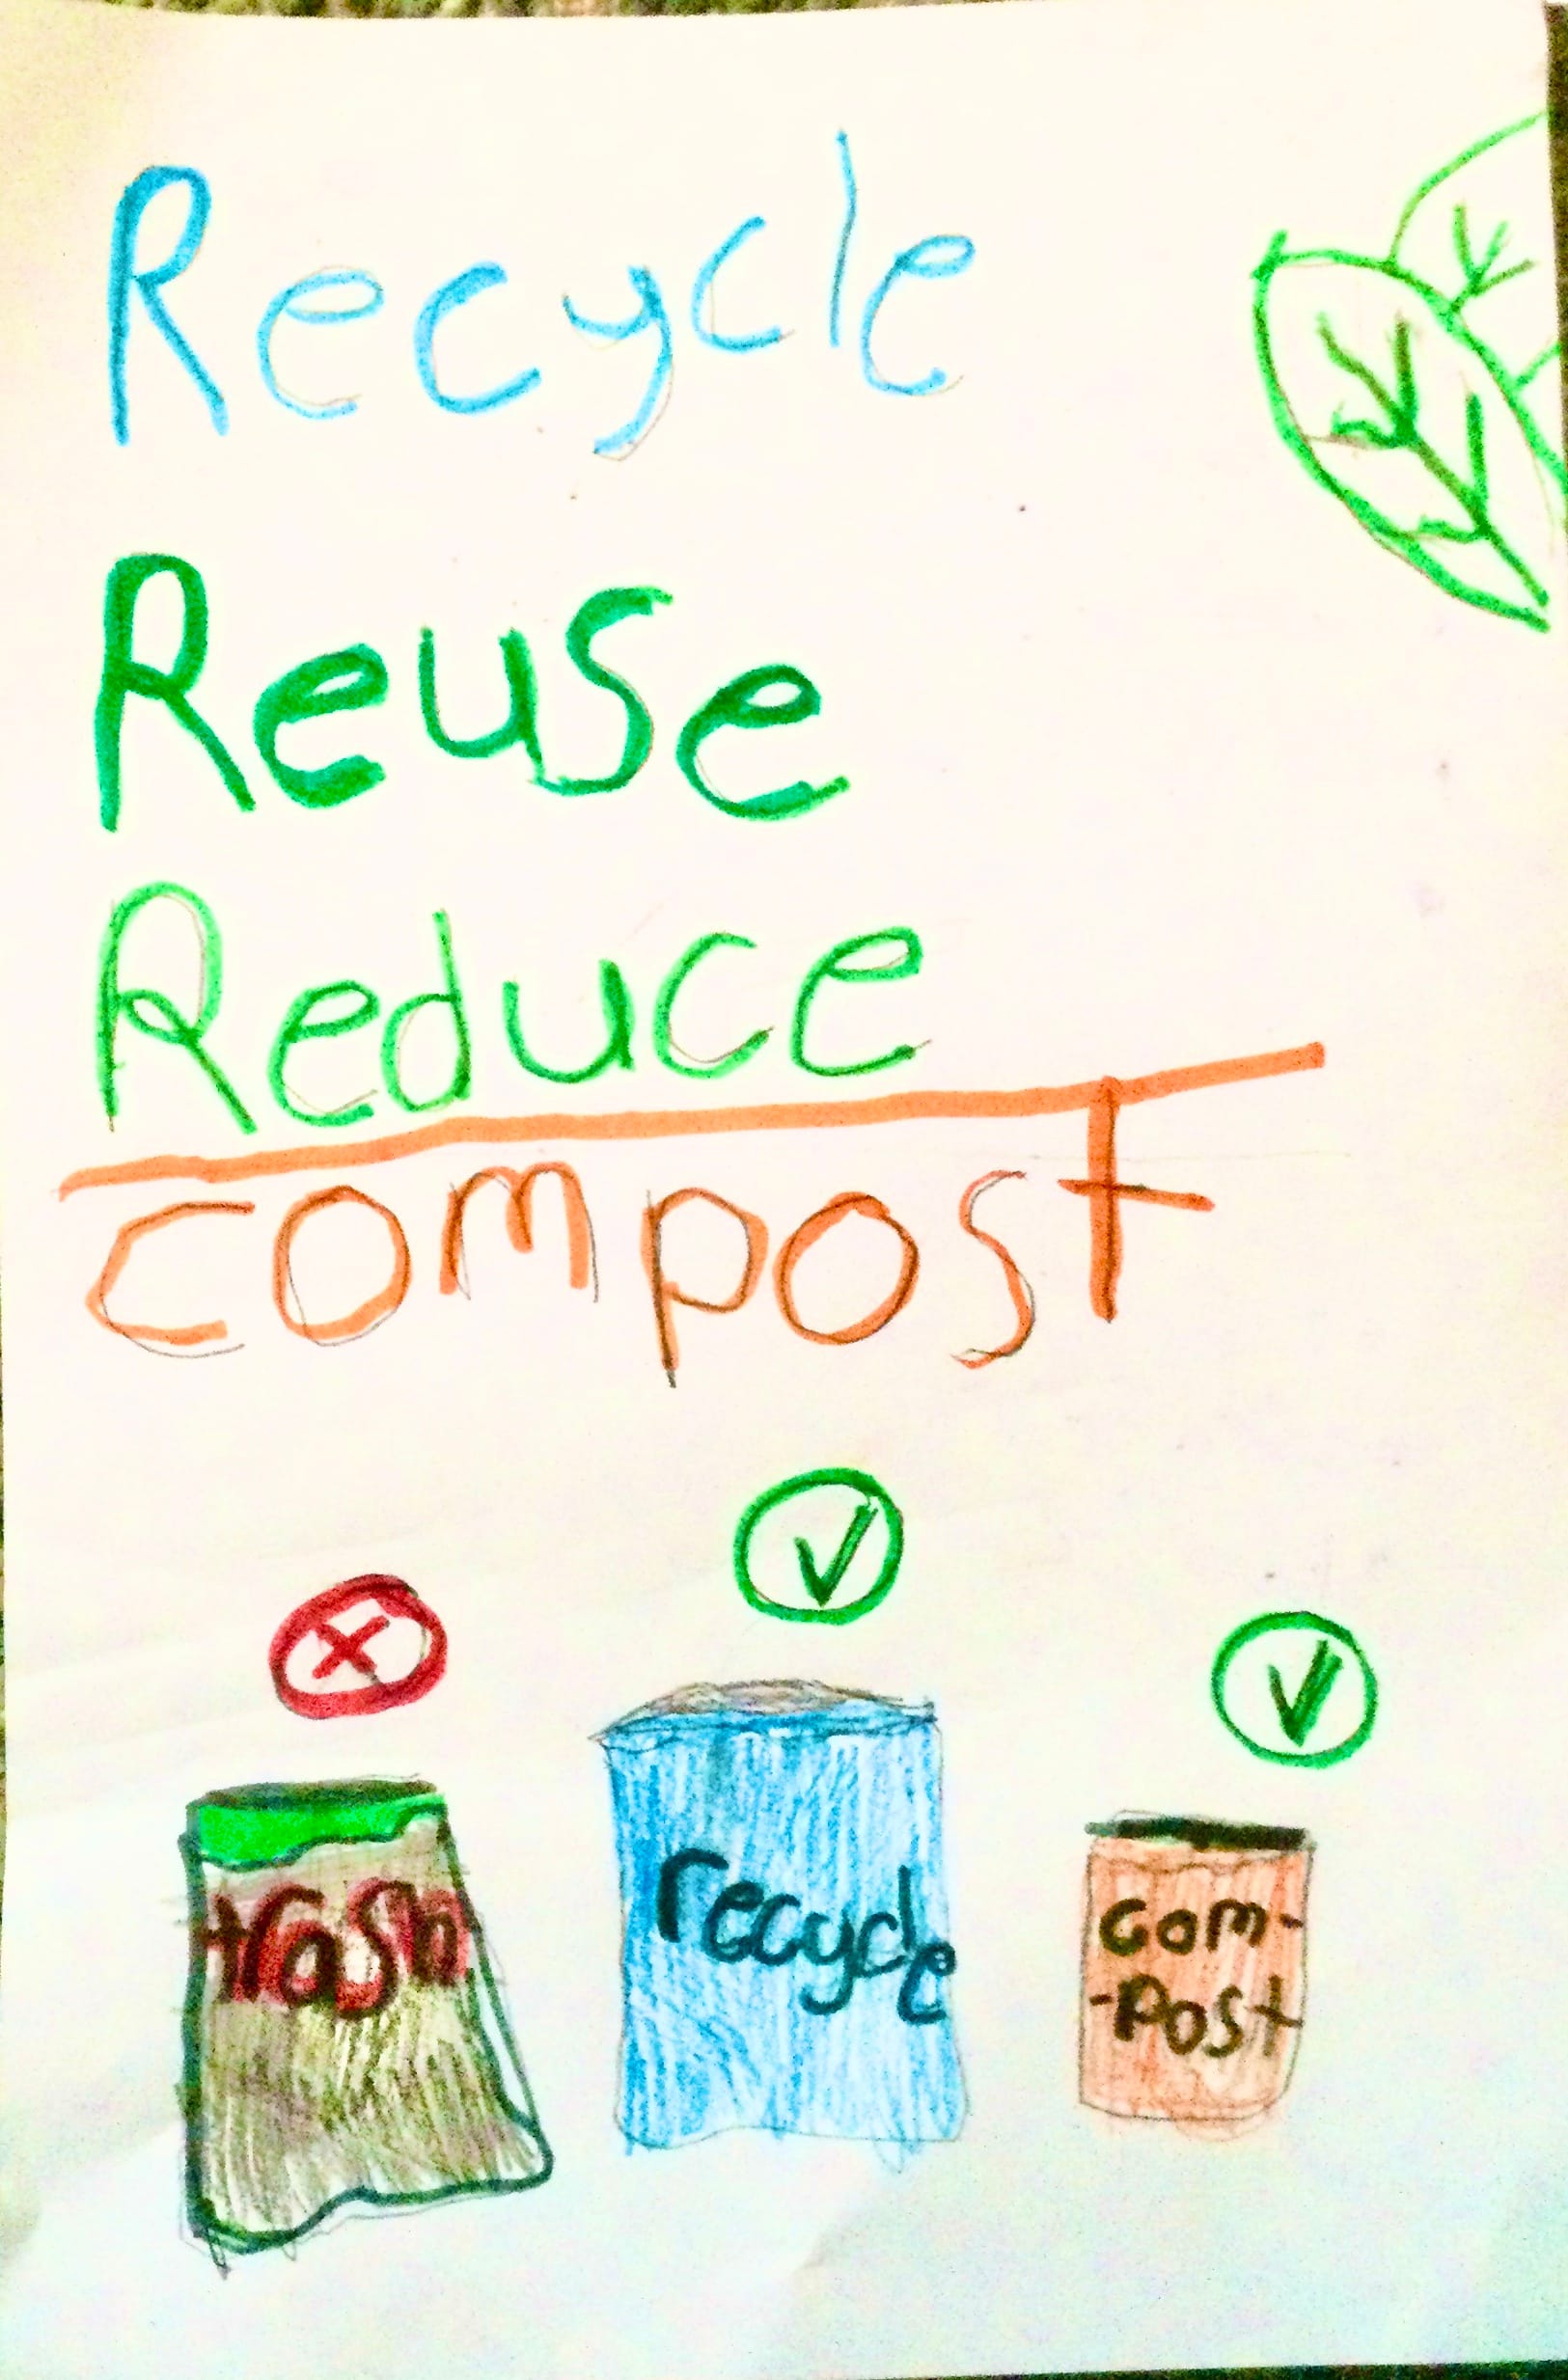 Recycle
Reuse
Reduce
compost
trash
recycle
com-
-post